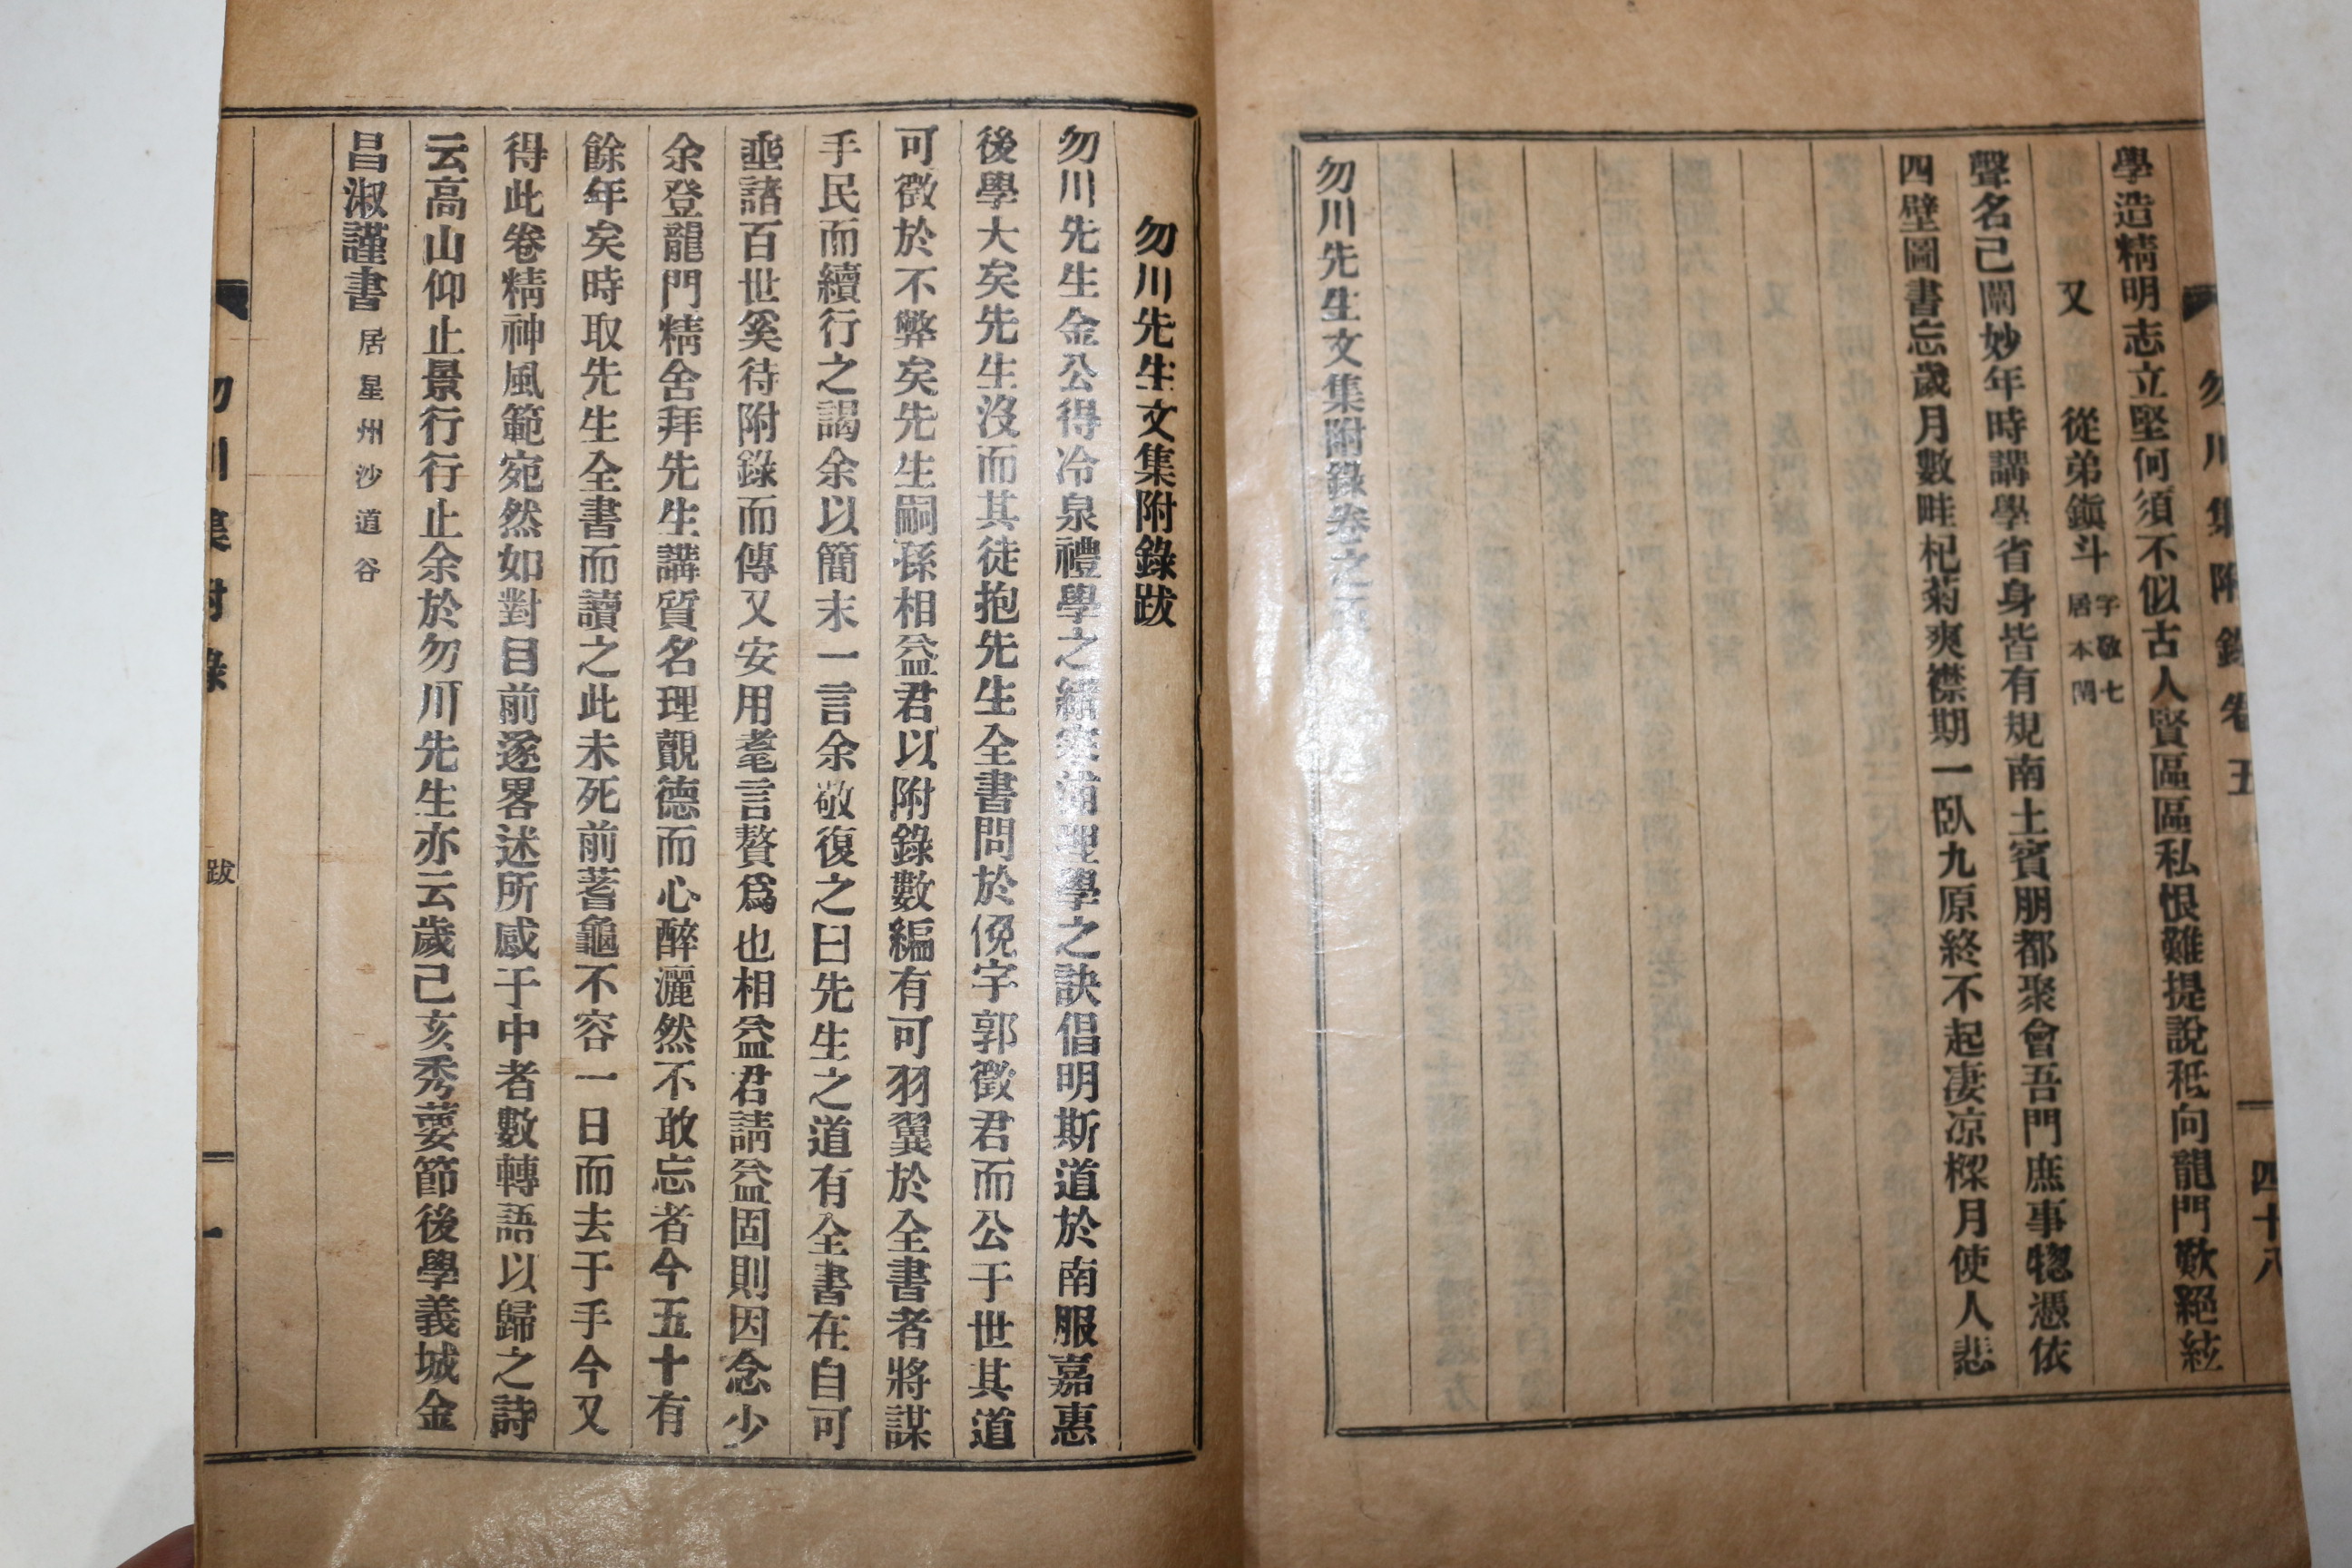 勿川集附錄卷五
四十八
學造精明志立堅何須不似古人賢區區私恨難提說秪向龍門歎絕絃
又 從弟鎭斗 字敬七 居本閈
聲名己闡妙年時講學省身皆有規南土賓朋都聚會吾門庶事惣憑依
四壁圖書忘歲月數畦杞菊爽襟期一臥九原終不起凄凉樑月使人悲
勿川先生文集附錄卷之
勿川先生文集附錄跋
勿川先生金公得冷泉禮學之緖寒浦理學之訣倡明斯道於南服嘉惠
後學大矣先生沒而其徒抱先生全書問於俛宇郭徵君而公于世其道
可徵於不弊矣先生嗣孫相益君以附錄數編有可羽翼於全書者將謀
手民而續行之謁余以簡末一言余敬復之曰先生之道有全書在自可
埀諸百世奚待附錄而傳又安用耄言贅爲也相益君請益固則因念少
余登龍門精舍拜先生講質名理觀德而心醉灑然不敢忘者今五十有
餘年矣時取先生全書而讀之此未死前蓍龜不容一日而去于手今又
得此卷精神風範宛然如對目前遂畧述所感于中者數轉語以歸之詩
云高山仰止景行行止余於勿川先生亦云歲己亥秀葽節後學義城金
昌淑謹書 居星州沙道谷
勿川集附錄
跋
一